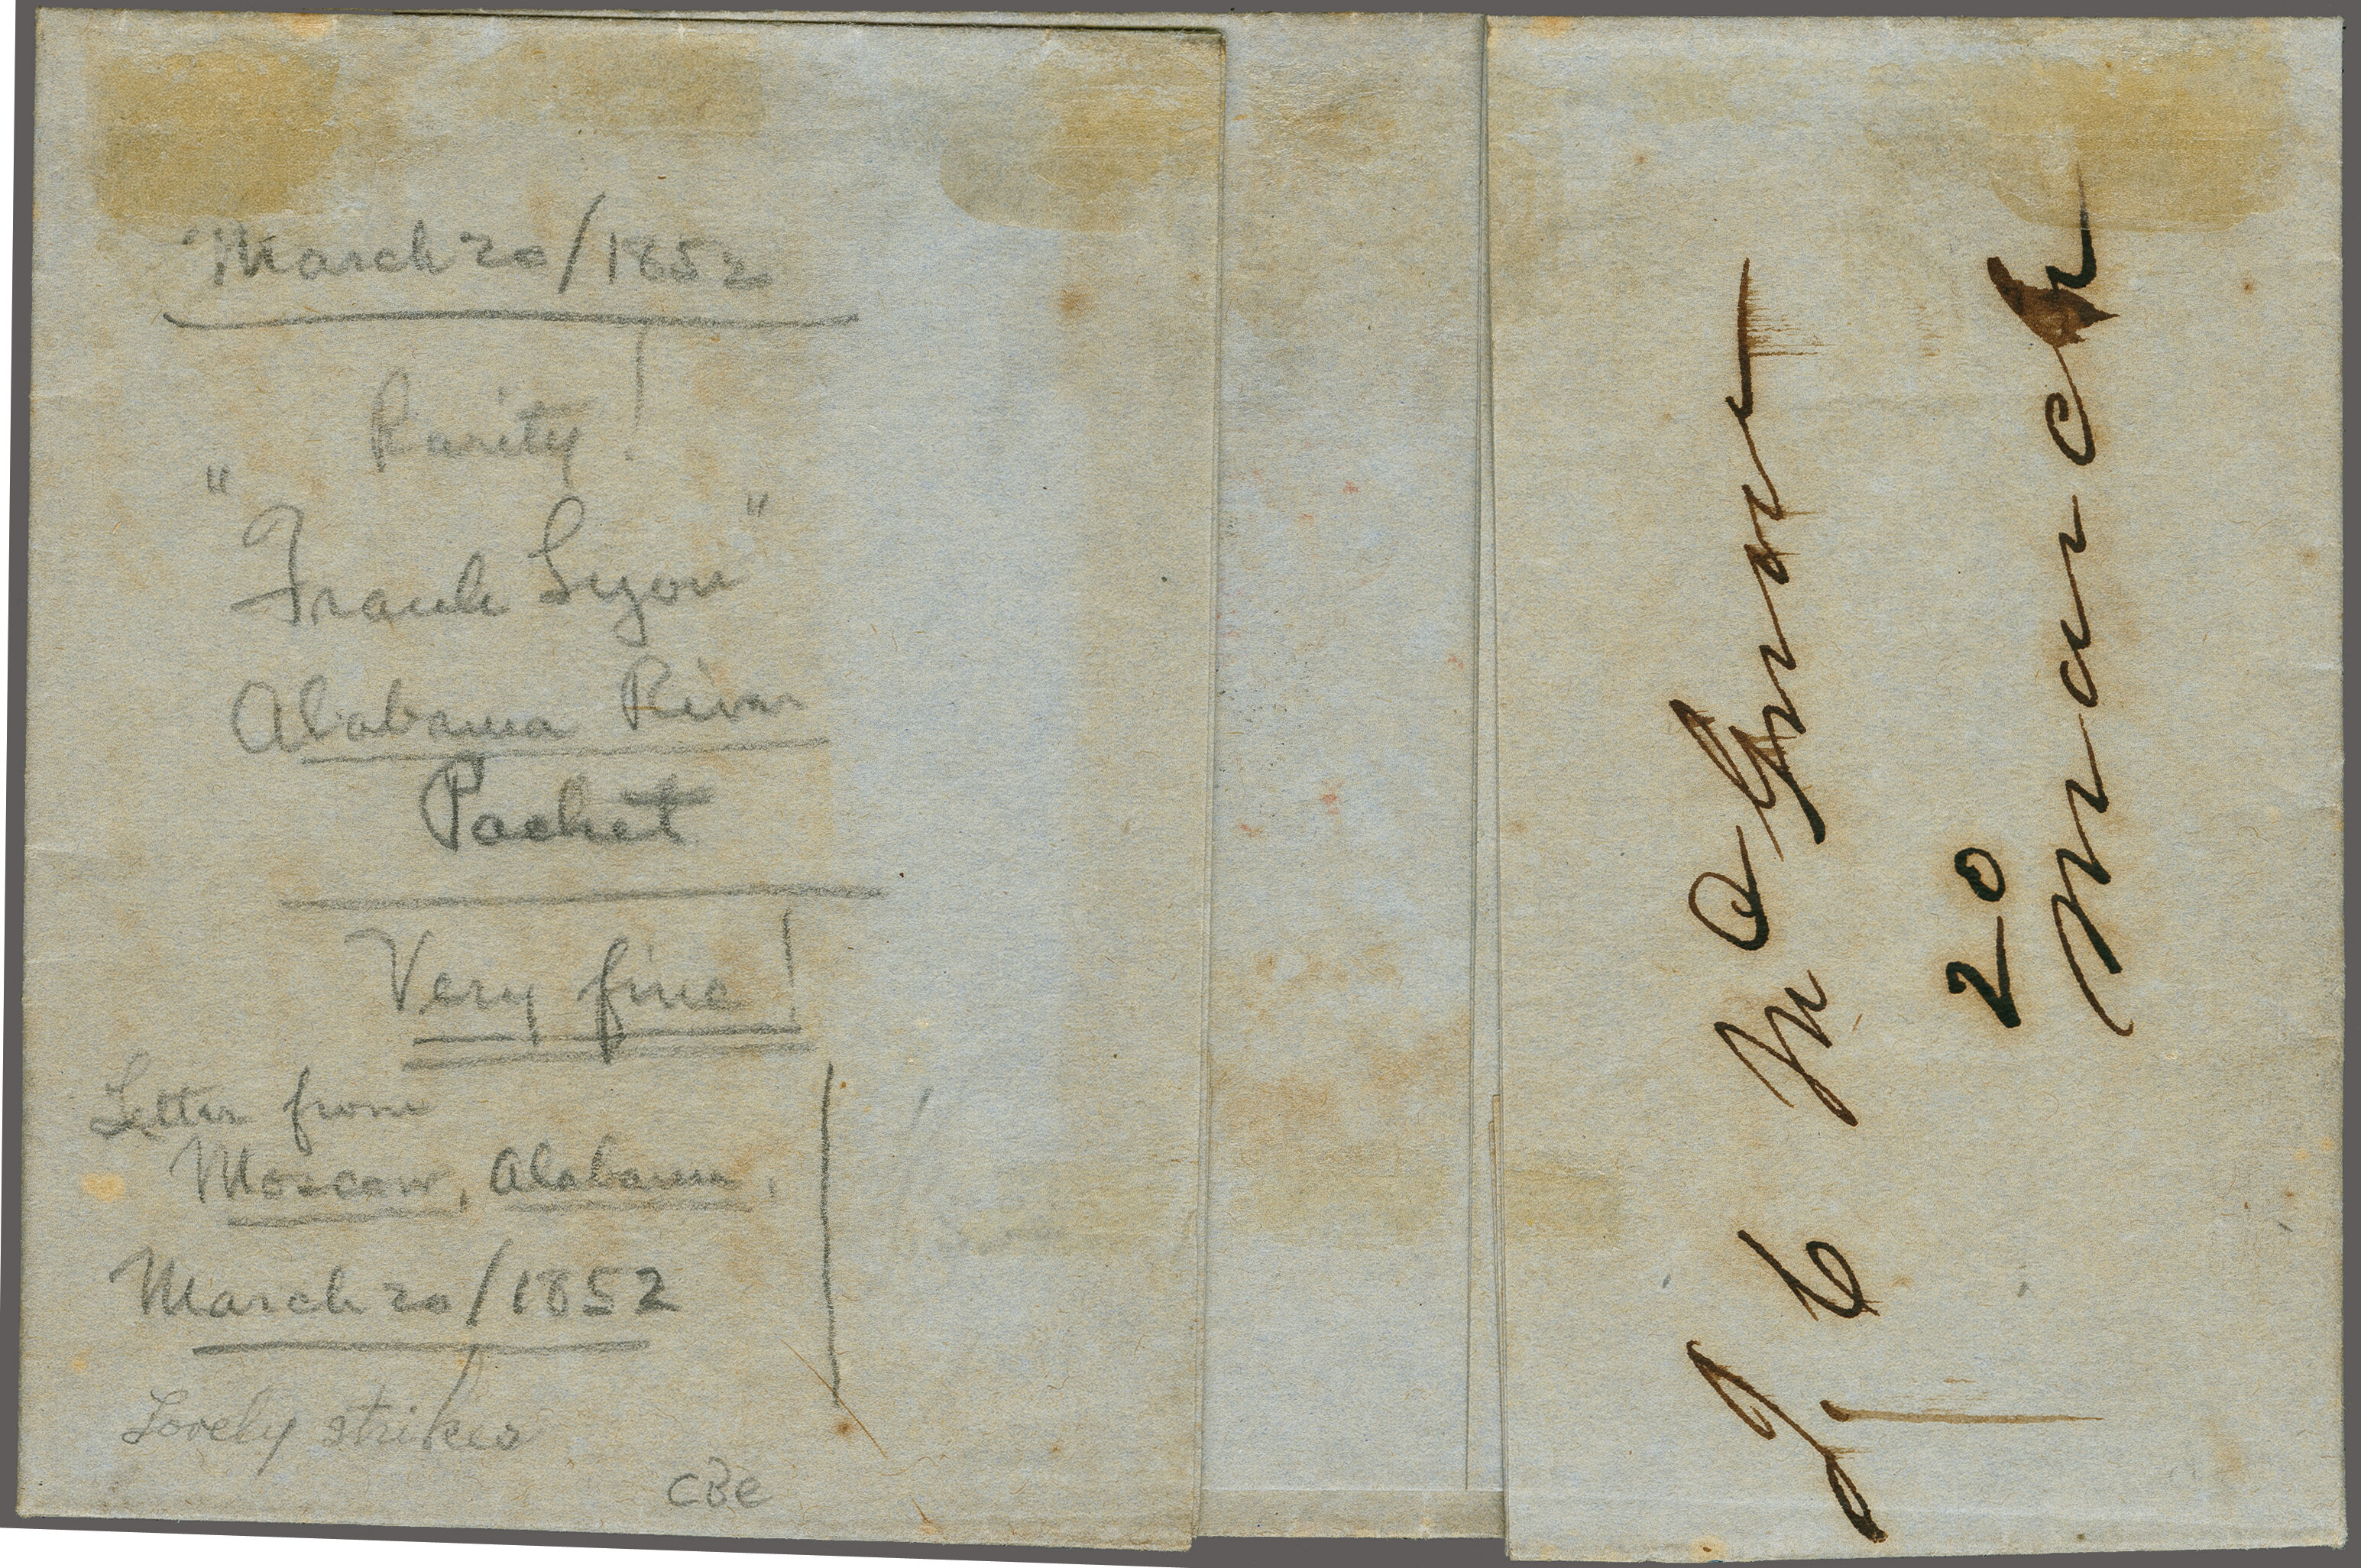 March 20/1852
Rarity!
"Frank Lyon"
Alabama River
Packet
Very fine!
Letter from
Moscow, Alabama,
March 20/1852
Lovely strikes
CBe
20
March